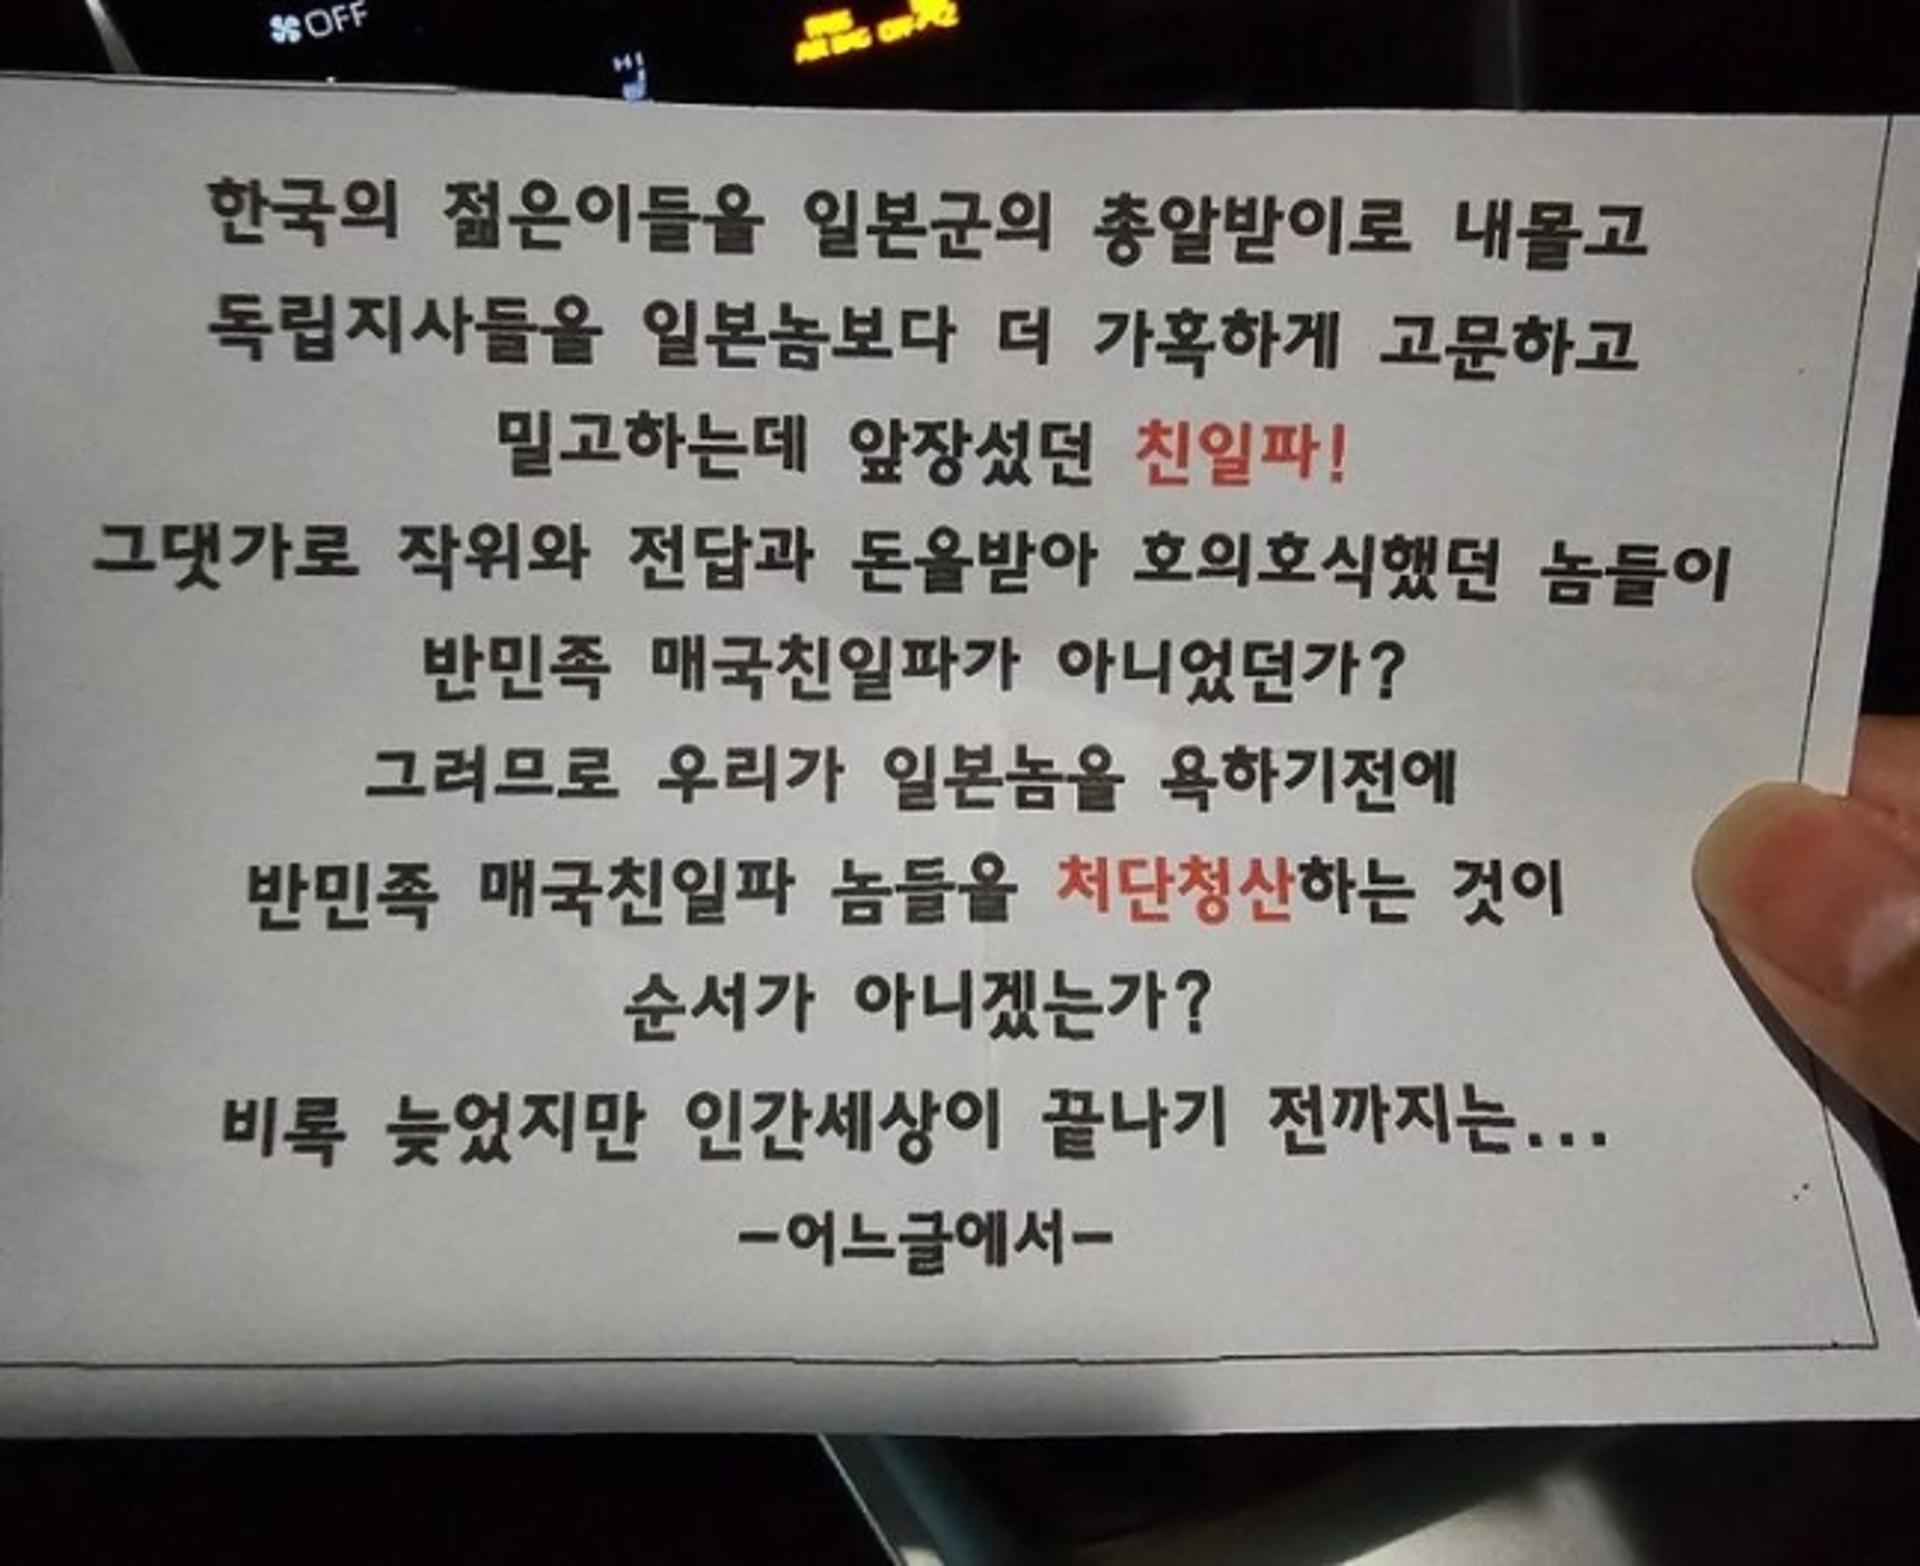 OFF
HI
한국의 젊은이들을 일본군의 총알받이로 내몰고
독립지사들을 일본놈보다 더 가혹하게 고문하고
밀고하는데 앞장섰던 친일파!
그댓가로 작위와 전답과 돈을받아 호의호식했던 놈들이
반민족 매국친일파가 아니었던가?
그러므로 우리가 일본놈을 욕하기전에
반민족 매국친일파 놈들을 처단청산하는 것이
순서가 아니겠는가?
비록 늦었지만 인간세상이 끝나기 전까지는...
-어느글에서-